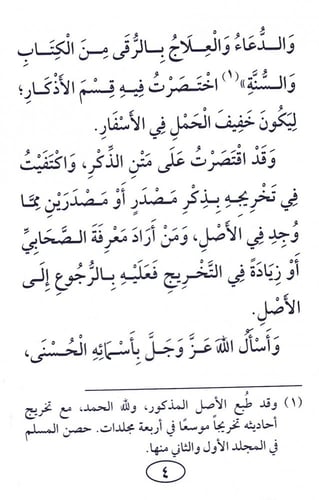 وَالدُّعَاءُ وَالْعِلَاجُ بِالرُّقَى مِنَ الْكِتَابِ
وَالسُّنَّةِ»(١) اخْتَصَرْتُ فِيهِ قِسْمَ الأَذْكَارِ؛
لِيَكُونَ خَفِيفَ الْحَمْلِ فِي الأَسْفَارِ.
وَقَدْ اقْتَصَرْتُ عَلَى مَتْنِ الذِّكْرِ، وَاكْتَفَيْتُ
فِي تَخْرِيجِهِ بِذِكْرِ مَصْدَرٍ أَوْ مَصْدَرَيْنِ مِمَّا
وُجِدَ فِي الأَصْلِ، وَمَنْ أَرَادَ مَعْرِفَةَ الصَّحَابِيِّ
أَوْ زِيَادَةً فِي التَّخْرِيجِ فَعَلَيْهِ بِالرُّجُوعِ إِلَى
الأَصْلِ.
وَأَسْأَلُ اللهَ عَزَّ وَجَلَّ بِأَسْمَائِهِ الْحُسْنَى،
(١) وقد طُبِع الأصل المذكور، ولله الحمد، مع تخريج
أحاديثه تخريجاً موسعاً في أربعة مجلدات. حصن المسلم
في المجلد الأول والثاني منها.
٤